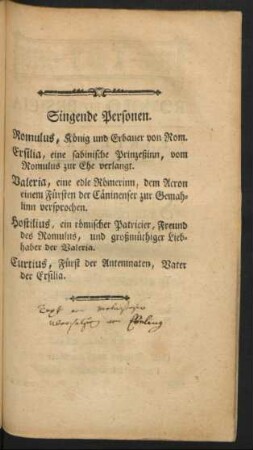 Singende Personen.
Romulus, König und Erbauer von Rom.
Ersilia, eine sabinische Prinzeßinn, vom
Romulus zur Ehe verlangt.
Valeria, eine edle Römerinn, dem Acron
einem Fürsten der Cäninenser zur Gemah-
linn versprochen.
Hostilius, ein römischer Patricier, Freund
des Romulus, und großmüthiger Lieb-
haber der Valeria.
Curtius, Fürst der Antemnaten, Vater
der Ersilia.